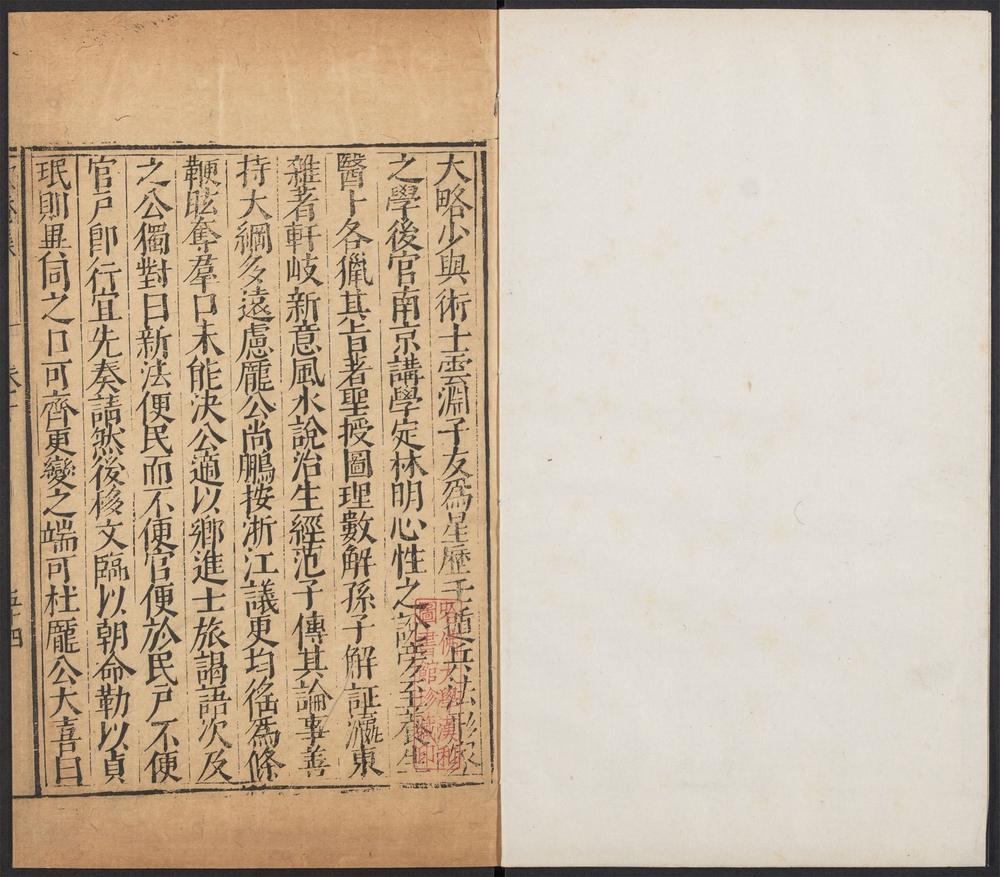 大略少與術士雲淵子友為星曆壬遁兵法形家
之學後官南京講學定林明心性之說旁至養生
醫卜各獵其旨著聖授圖理數解孫子解証瀛東
雜著軒岐新意風水說治生經范子傳其論事善
持大綱多遠慮龐公尚鵬按浙江議更均徭為條
鞭眩奪羣口未能決公適以鄉進士旅謁語次及
之公獨對曰新法便民而不便官便於民戶不便
官戶卽行宜先奏請然後移文臨以朝命勒以貞
珉則異同之口可齊更變之端可杜龐公大喜曰
五十四
哈佛大學漢和
圖書館珍藏印